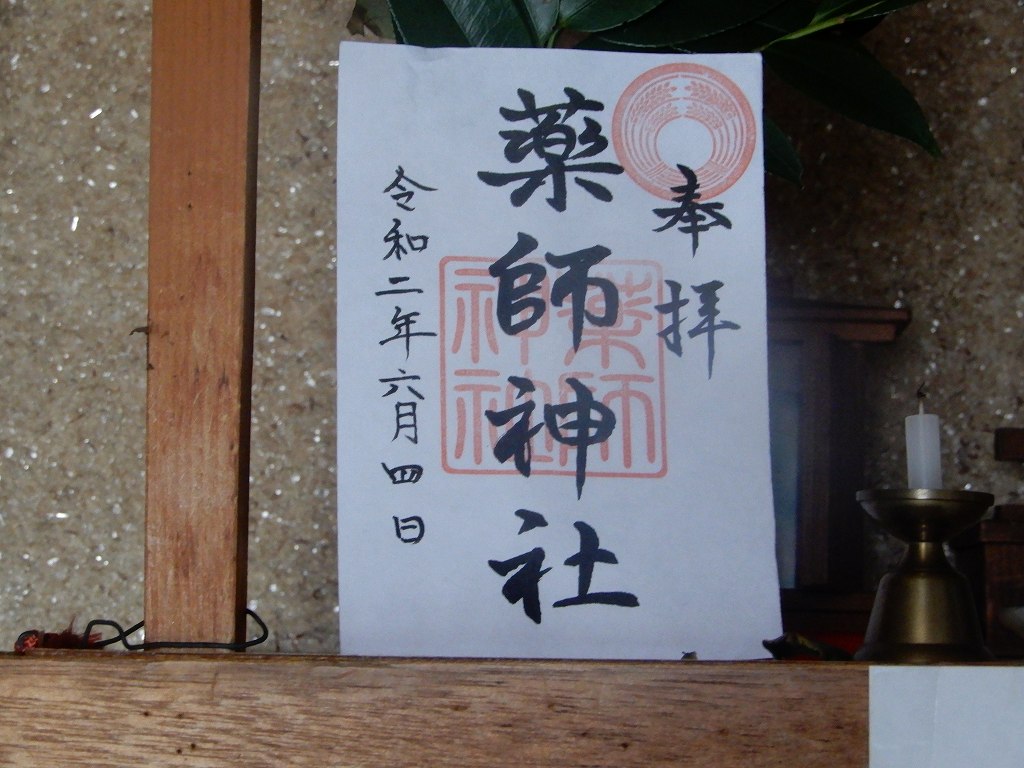 奉拝
薬師神社
令和二年六月四日
薬師
神社